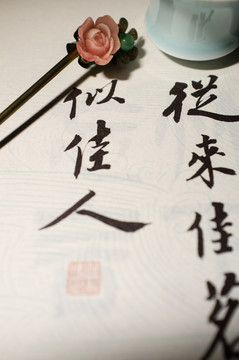 從來佳茗
似佳人